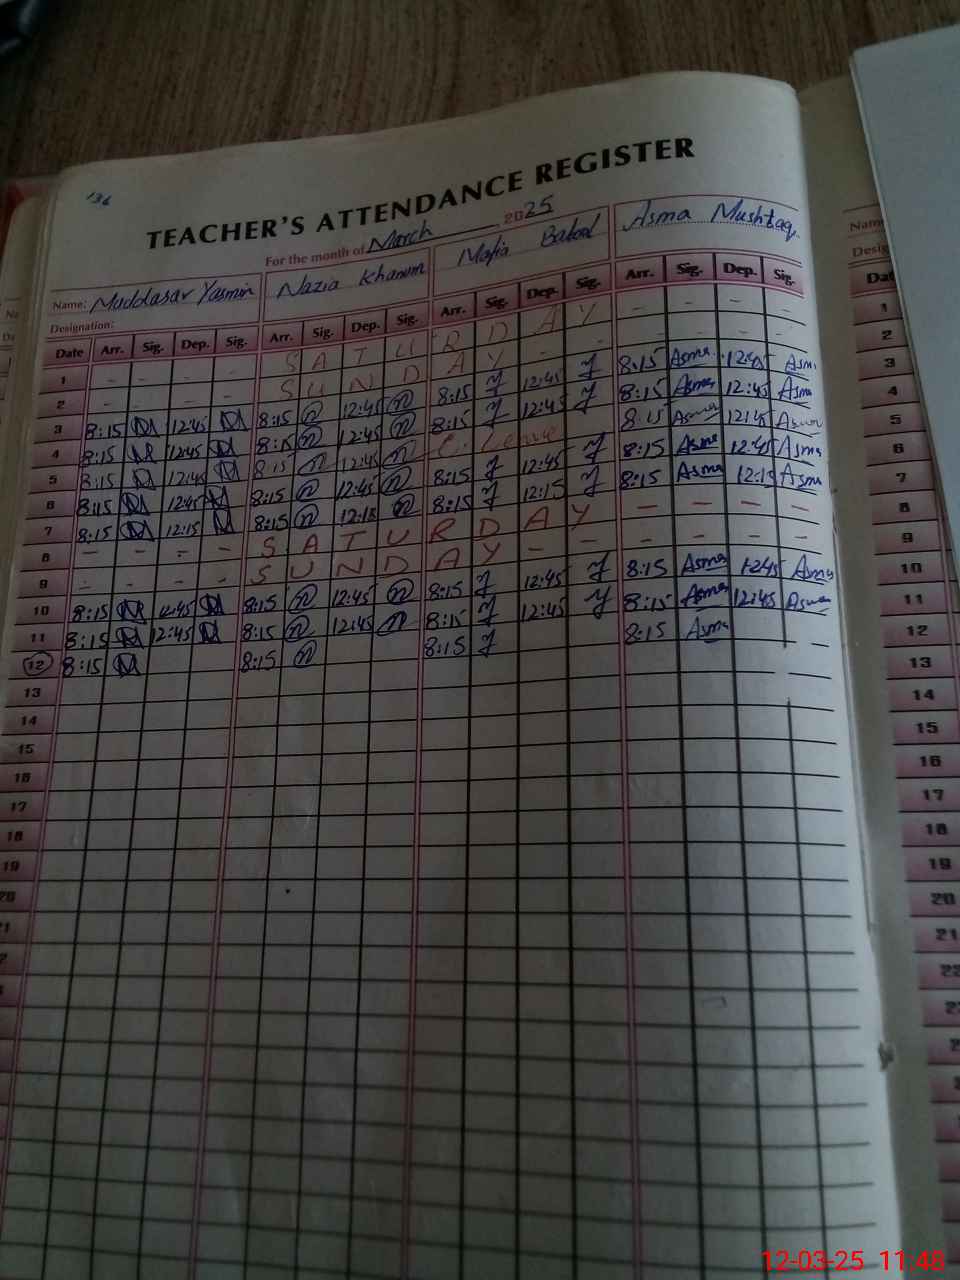 136
TEACHER'S ATTENDANCE REGISTER
For the month of March 2025
Name: Muddasar Yasmin Nazia Khanum Asma Mushtaq.
Designation:
Date Arr. Sig. Dep. Sig. Arr. Sig. Dep. Sig. Arr. Sig. Dep. Sig. Arr. Sig. Dep. Sig.
1 - - - - S A T U R D A Y - - - -
2 - - - - S U N D A Y - - - - - -
3 8:15 12:45 8:15 n 12:45 n 8:15 12:45 8:15 Asma 12:45 Asma
4 8:15 12:45 8:15 n 12:45 n 8:15 12:45 8:15 Asma 12:45 Asma
5 8:15 12:45 8:15 n 12:45 n C. Leave 8:15 Asma 12:45 Asma
6 8:15 12:45 8:15 n 12:45 n 8:15 12:45 8:15 Asma 12:45 Asma
7 8:15 12:15 8:15 n 12:15 n 8:15 12:15 8:15 Asma 12:15 Asma
8 - - - - S A T U R D A Y - - - -
9 - - - - S U N D A Y - - - - - -
10 8:15 12:45 8:15 n 12:45 n 8:15 12:45 8:15 Asma 12:45 Asma
11 8:15 12:45 8:15 n 12:45 n 8:15 12:45 8:15 Asma 12:45 Asma
12 8:15 8:15 n 8:15 8:15 Asma
13
14
15
16
17
18
19
20
Name
Desig
Dat
1
2
3
4
5
6
7
8
9
10
11
12
13
14
15
16
17
18
19
20
21
12-03-25 11:48